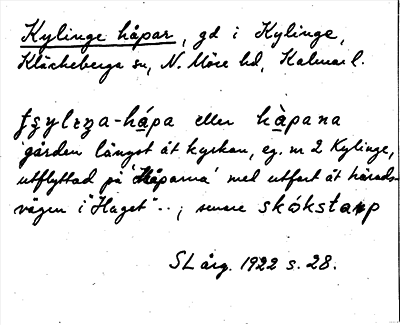 Kylinge håpar, gd i Kylinge,
Kläckeberga sn, N. Möre hd, Kalmar l.
-hápa eller hàpana
gården längst åt kyrkan, eg. nr 2 Kylinge,
utflyttad på 'Håparna' med utfart åt härads-
vägen i "Haget"..; senare skókstarp
SLårg. 1922 s. 28.